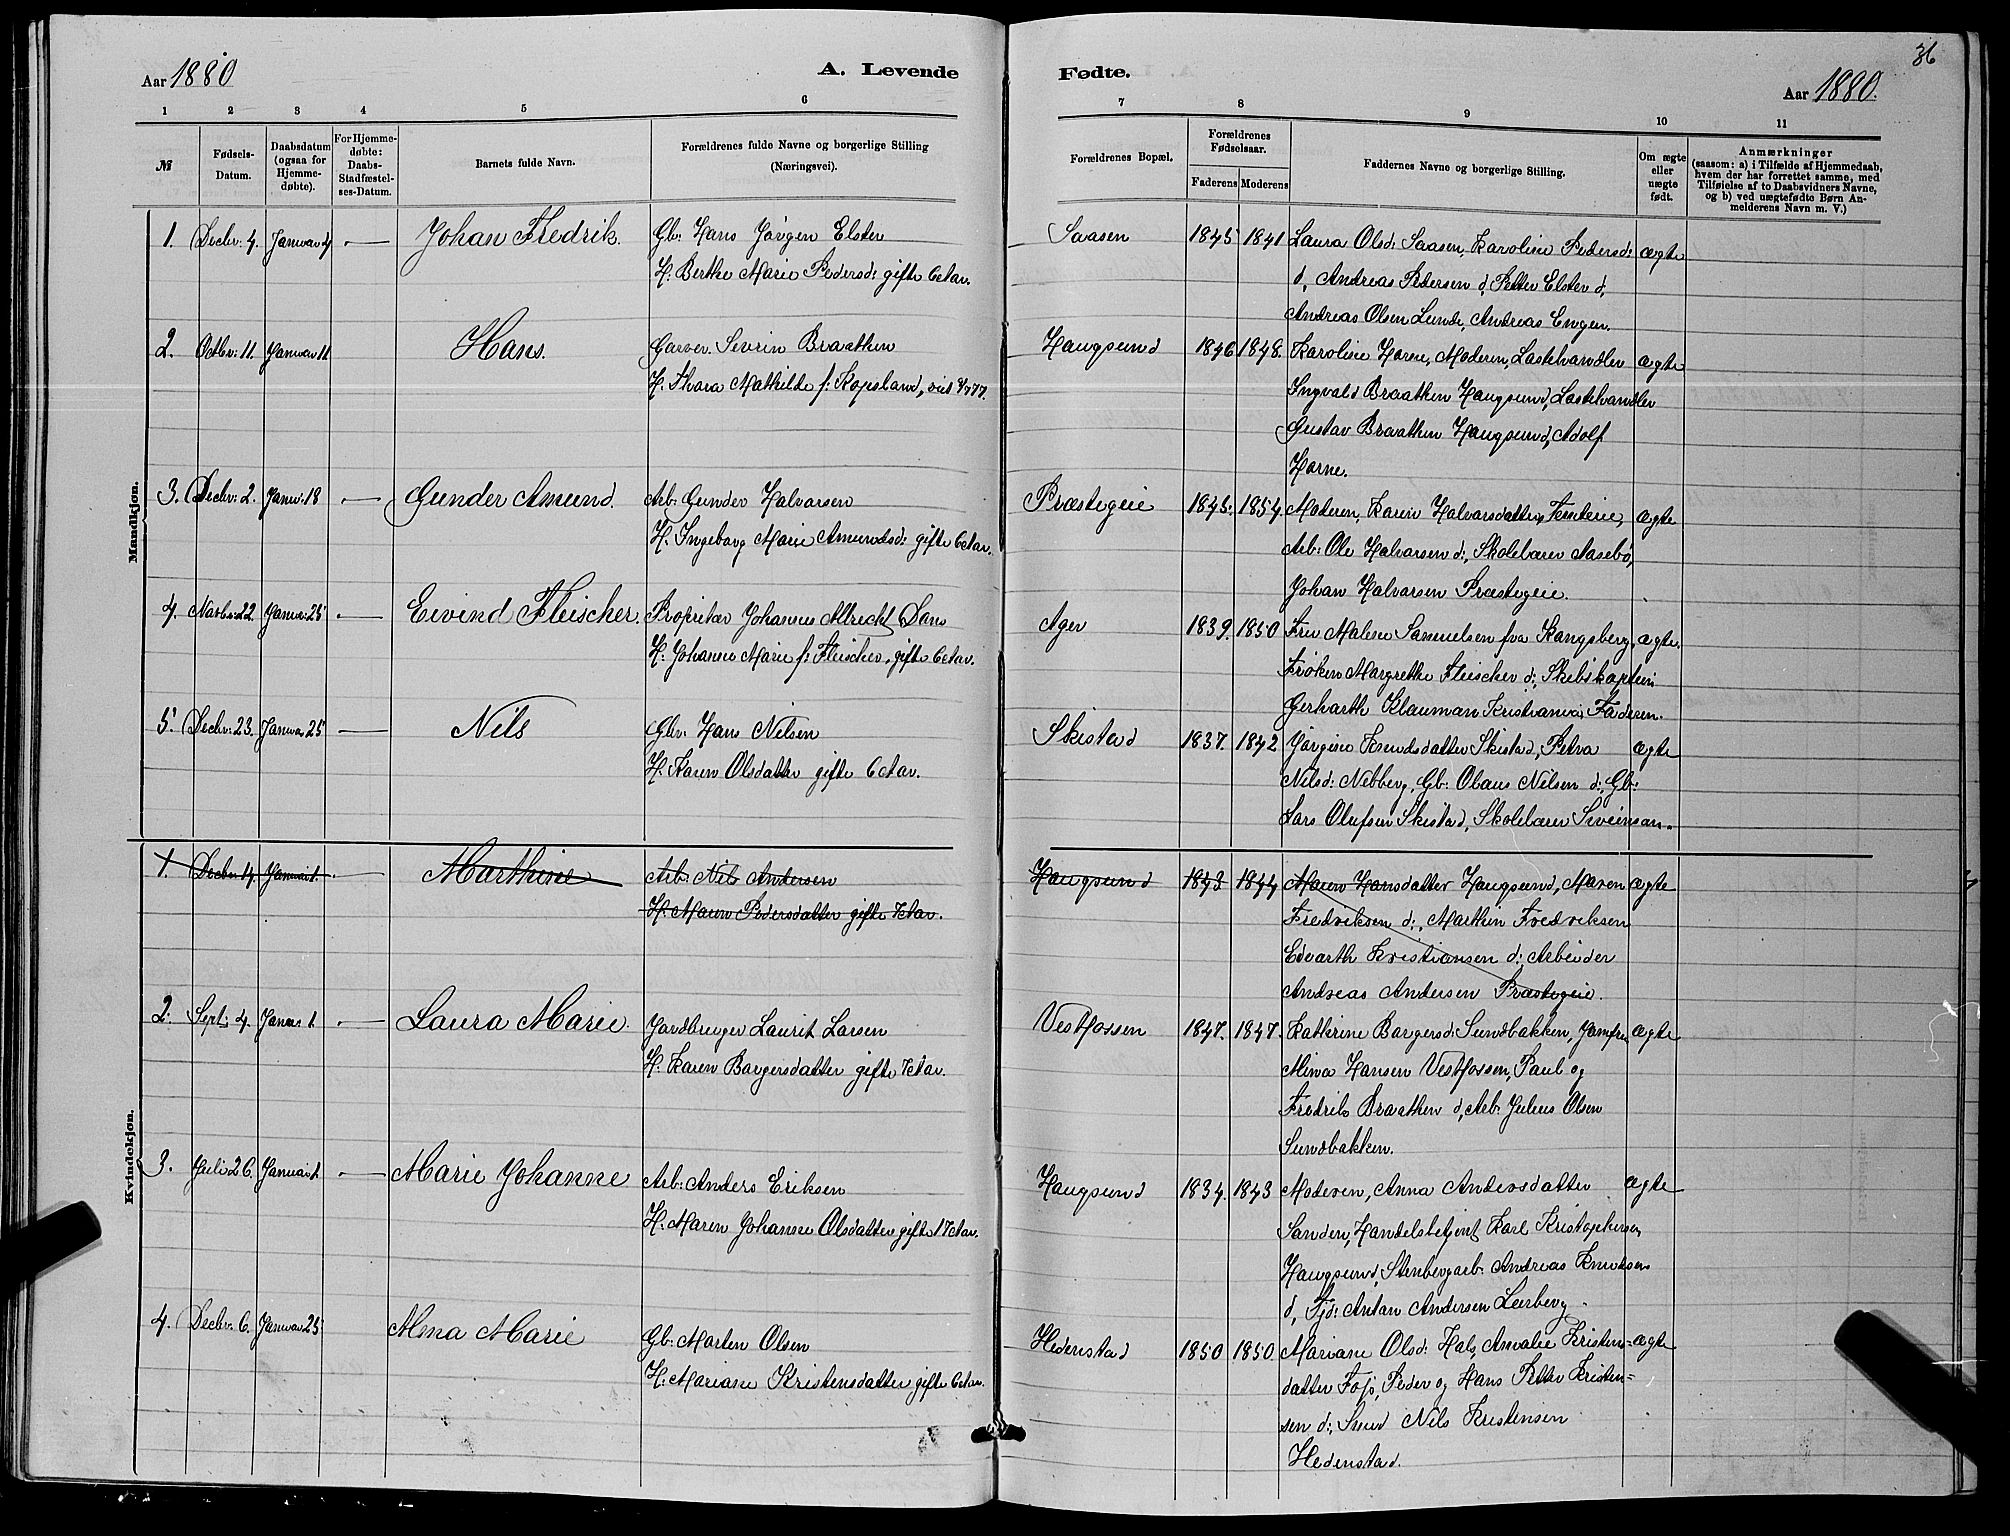 36
Aar 1880
A. Levende
Fødte.
Aar 1880.
1 2 3 4 5 6 7 8 9 10 11
№
Fødsels-
Datum.
Daabsdatum
(ogsaa for
Hjemme-
døbte).
For Hjemme-
døbte:
Daabs-
Stadfæstel-
ses-Datum.
Barnets fulde Navn.
Forældrenes fulde Navne og borgerlige Stilling
(Næringsvei).
Forældrenes Bopæl.
Forældrenes
Fødselsaar.
Faderens Moderens
Faddernes Navne og borgerlige Stilling.
Om ægte
eller
uægte
født.
Anmærkninger
(saasom: a) i Tilfælde af Hjemmedaab,
hvem der har forrettet samme, med
Tilføielse af to Daabsvidners Navne,
og b) ved uægtefødte Børn An-
melderens Navn m. V.)
Mandkjøn.
1. Decbr: 4. Januar 4 — Johan Fredrik. Gb: Hans Jörgen Elster Saasen 1845 1841 Laura Olsd: Saasen, Karoline Pedersd: ægte
H: Berthe Marie Pedersd: gifte 6ctav. d, Andreas Pedersen d, Petter Elster d,
Andreas Olsen Lunde, Andreas Engen.
2. Octbr: 11. Januar 11 Hans. Garver Sevrin Braathen Haugsund 1846 1848. Karoline Horne, Moderen, Lastehandler ægte
H. Thora Mathilde f: Kopsland, Ingvald Braathen Haugsund, Lastehandler
Gustav Braathen Haugsund, Adolf
Horne.
3. Decbr: 2. Januar: 18 — Gunder Amund. Arb: Gunder Halvorsen Præstegeie 1845. 1854 Moderen, Karen Halvorsdatter ægte
H. Ingeborg Marie Amundsd: gifte 6ctav. Arb: Ole Halvorsen d:, Skolelærer Aasebö,
Johan Halvorsen Præstegeie.
4. Novbr: 22. Januar 25 — Eivind Fleischer. Propritær Johannes Albrecht Dons Ager 1839. 1850 Fru Malene Samuelsen fra Kongsberg, ægte.
H: Johanne Marie f: Fleischer, gifte 6ctav. Fröken Margrethe Fleischer d:, Skibskaptein
Gerharth Klauman Kristiania, Faderen.
5. Decbr: 23. Januar 25 — Nils Gbr: Hans Nilsen Skistad 1837. 1842 Jörgine Knudsdatter Skistad, Petra ægte
H. Karen Olsdatter gifte 6ctav. Nilsd: Nebberg, Gb: Olaus Nilsen d:, Gb:
Lars Olufsen Skistad, Skolelærer
Kvindekjøn.
1. Decbr 14 Januar 1. — Marthine Arb: Nils Andersen Haugsund 1843 1844 Maren Hansdatter Haugsund, Maren ægte
H. Maren Pedersdatter gifte 7ctav. Fredriksen d:, Marthin Fredriksen
Edvarth Kristiansen d: Arbeider
Andreas Andersen Præstegeie.
2. Sept: 4. Januar 1. — Laura Marie. Jordbruger Laurits Larsen Vestfossen 1847. 1847. Kathrine Borgersd: Sundbakken, Jomfru ægte
H: Karen Borgersdatter gifte 7ctav. Mina Hansen Vestfossen, Paul og
Fredrik Braathen d, Arb: Julius Olsen
Sundbakken.
3. Juli 26. Januar 1. — Marie Johanne Arb: Anders Eriksen Haugsund 1834. 1843 Moderen, Anna Andersdatter ægte
H: Maren Johanne Olsdatter gifte 17ctav. Sanden, Handelsbetjent Karl Kristophersen
Haugsund, Stenbergarb: Andreas Knudsen
d, Tjd: Anton Andersen Leerberg.
4. Decbr: 6. Januar 25 Alma Marie Gb: Morten Olsen Hedenstad 1850 1850 Mariane Olsd: Hals Amalie Kristens= ægte
H: Mariane Kristensdatter gifte 6ctav. datter Fosjö, Peder og Hans Petter Kristen=
sen d:, Nils Kristensen
Hedenstad.